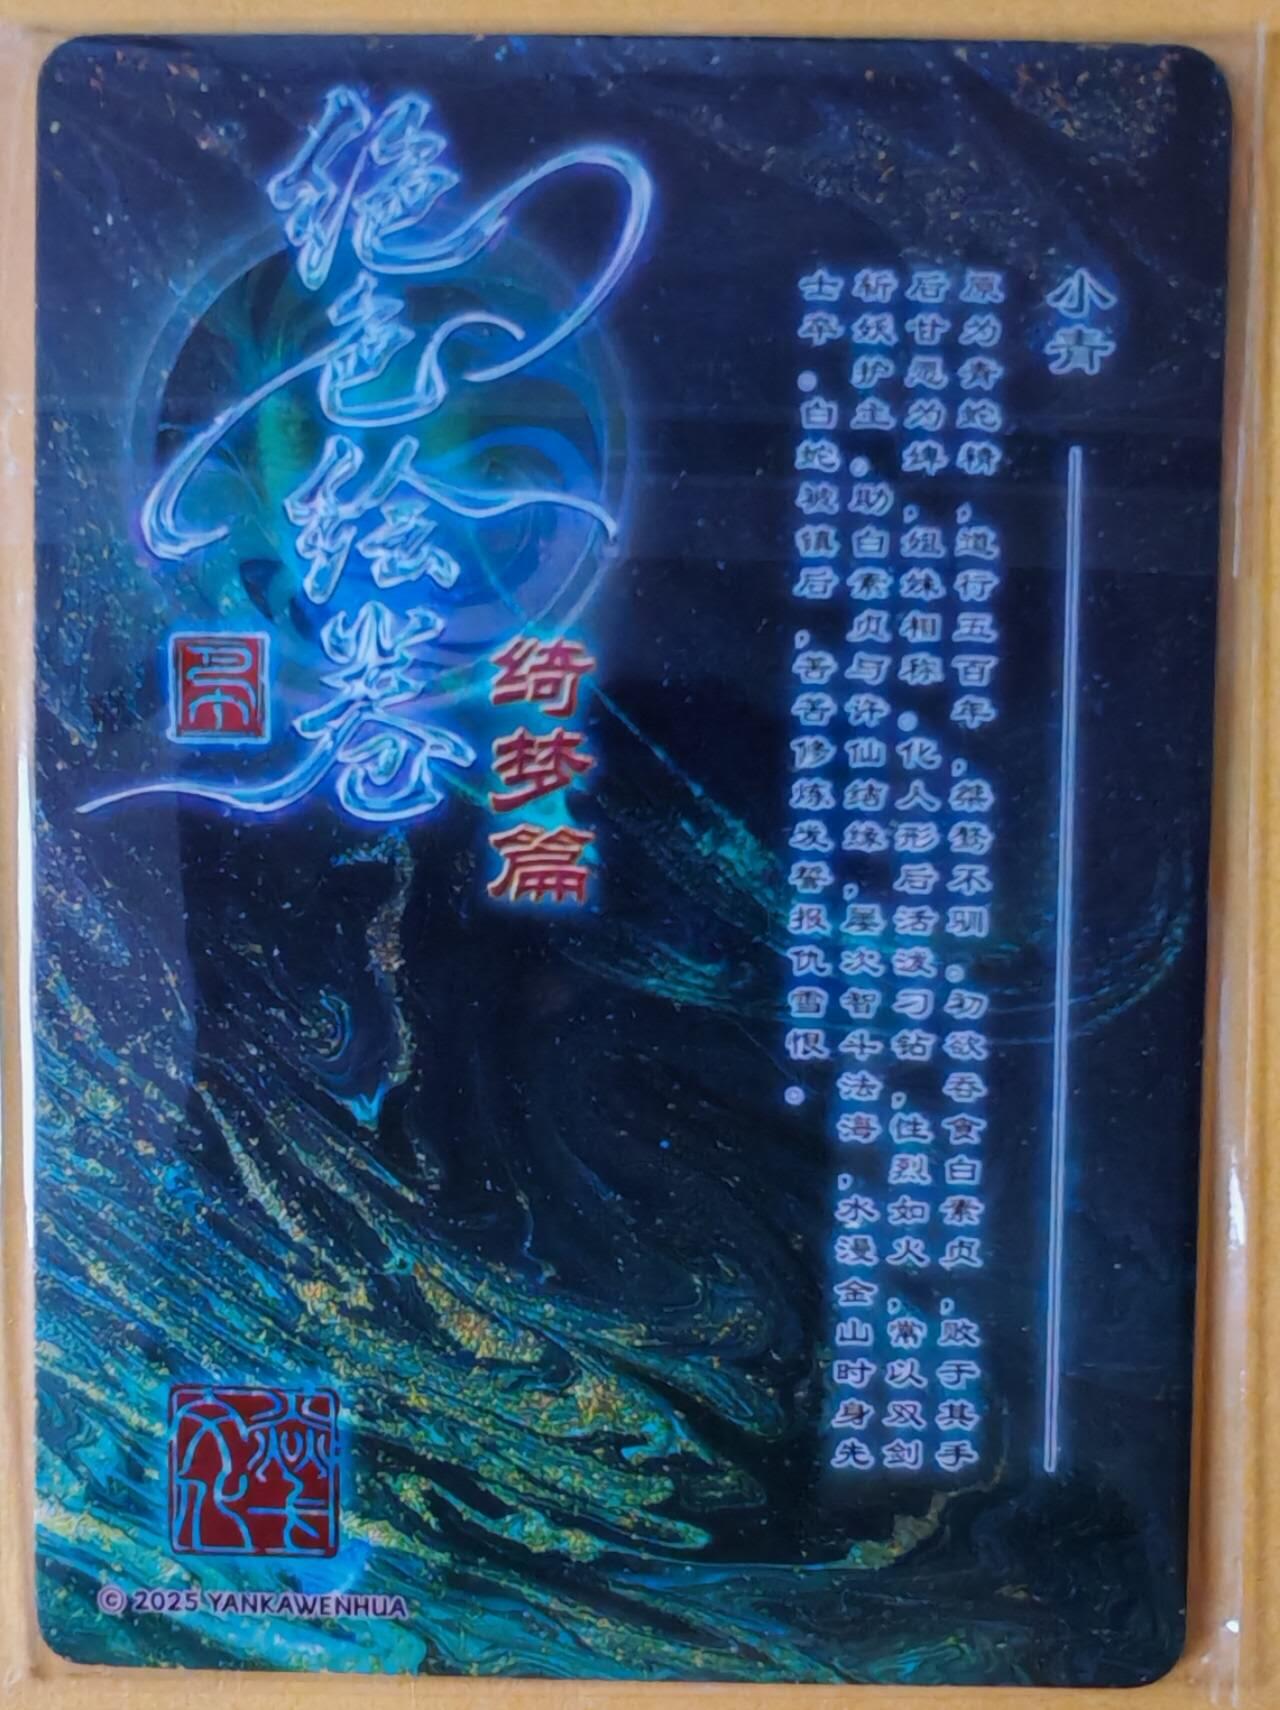 小青
原为青蛇精，道行五百年，桀骜不驯。初欲吞食白素贞，败于其手
后甘愿为婢，姐妹相称。化人形后活泼刁钻，性烈如火，常以双剑
斩妖护主。助白素贞与许仙结缘，屡次智斗法海，水漫金山时身先
士卒。白蛇被镇后，苦苦修炼发誓报仇雪恨。
绝色绘卷
绮梦篇
焱卡
文化
© 2025 YANKAWENHUA